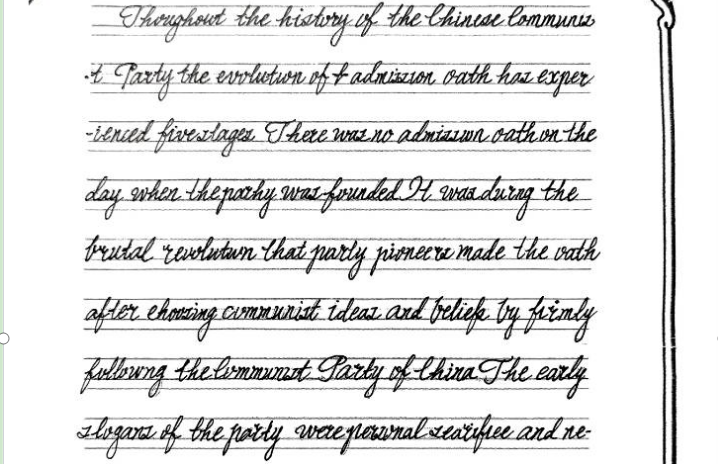 Thoughout the history of the Chinese Communis
-t Party the evolution of t admission oath has exper
-ienced five stages There was no admission oath on the
day when the pathy was founded It was durng the
brutal revolution that party pioneers made the oath
after choosing communist ideas and beliefs by firmly
following the Communist Party of China The early
slogans of the party were personal searifice and ne-